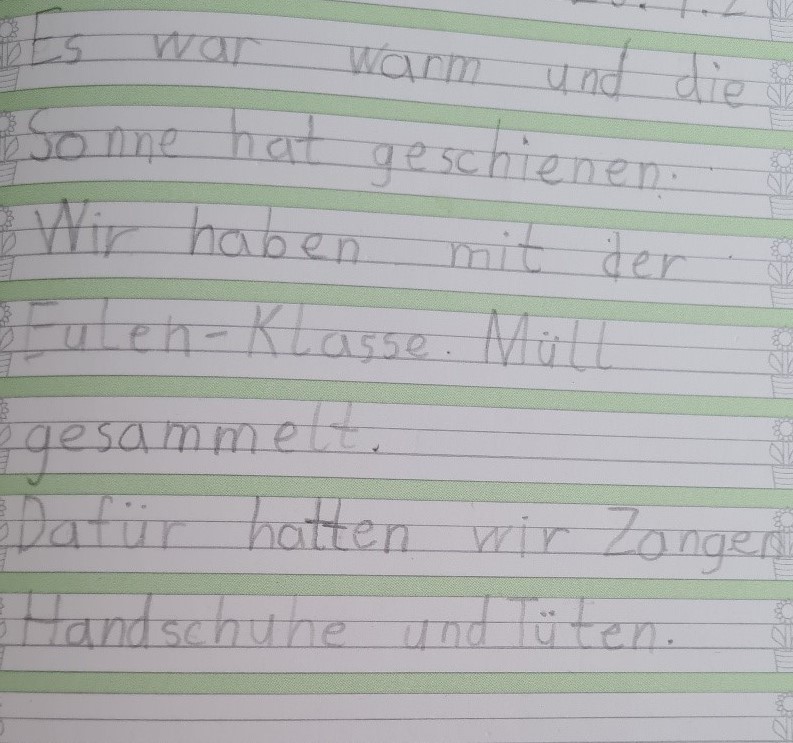 Es war warm und die
Sonne hat geschienen.
Wir haben mit der
Eulen-Klasse. Müll
gesammelt.
Dafür hatten wir Zangen
Handschuhe und Tüten.